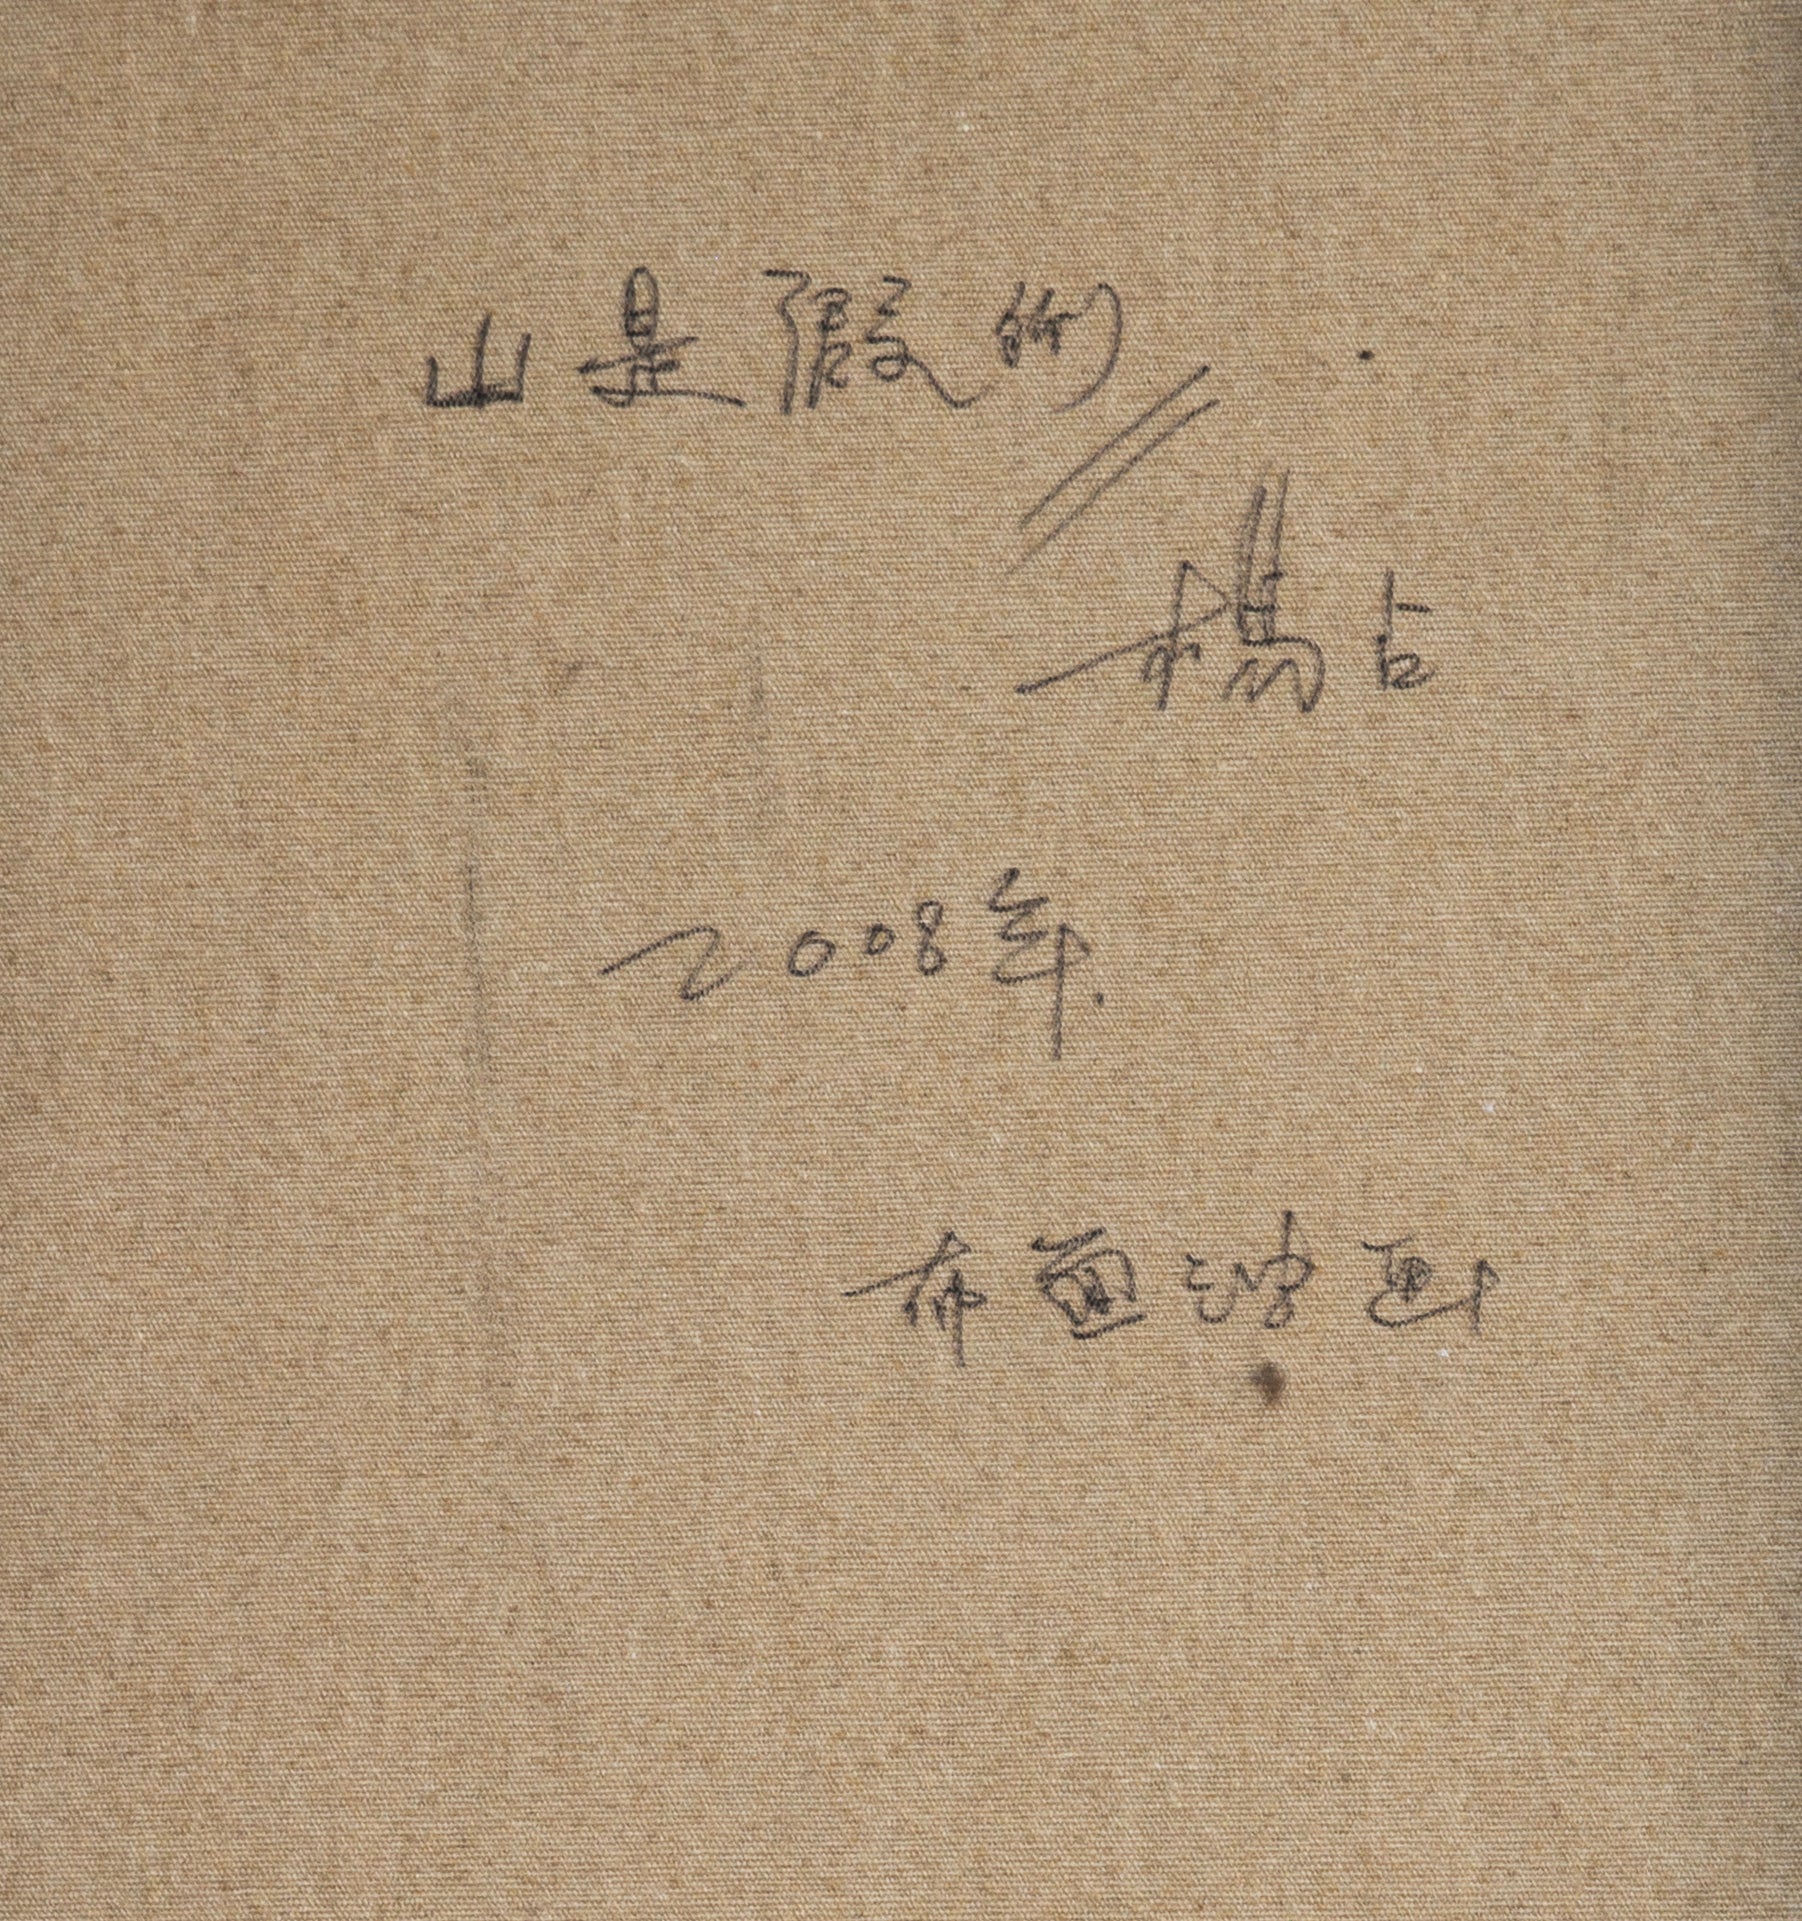 山是假的
楊占
2008年.
布面油画